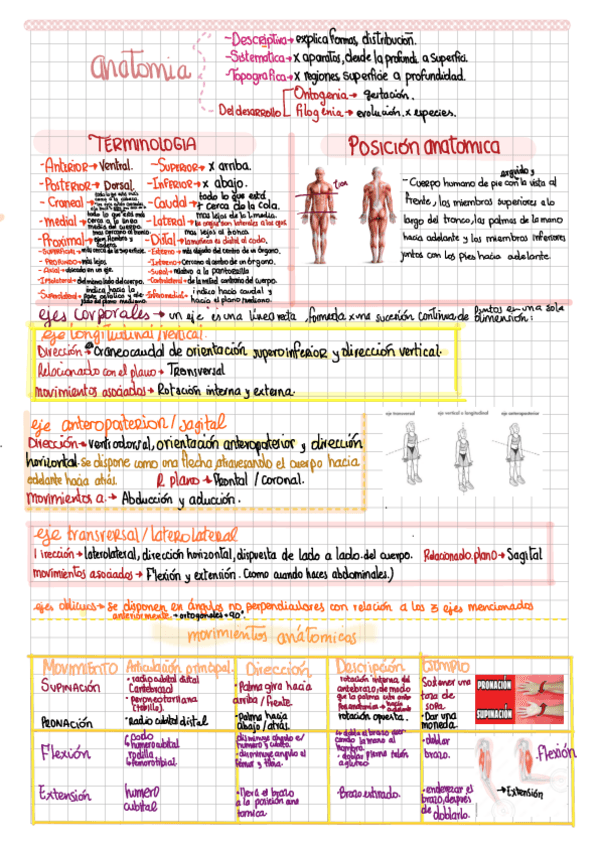 anatomia
-Descriptiva→ explica formas, distribución.
-Sistematica→ x aparatos, desde la profundi. a superfici.
-Topografica→ x regiones, superficie a profundidad.
Del desarrollo
Ontogenia→ gestación.
Filogenia→ evolución x especies.
TERMINOLOGIA
-Anterior→ Ventral.
-Posterior→ Dorsal.
- Craneal→
- medial→
-Proximal→
- Superficial→ más cerca de la superficie.
- Profundo→ más lejos.
- Axial→ ubicado en un eje.
- Ipsolateral→ del mismo lado del cuerpo.
- Superolateral→ indica hacia la
-Superior→ x arriba.
-Inferior→ x abajo.
- Caudal→ todo lo que está
+ cerca de la cola.
- Lateral→
mas lejos al tronco.
- Distal→ la muñeca es distal al codo.
- Externo→ más alejado del centro de un órgano.
- Interno→ Cercano al centro de un órgano.
- Sural→ relativo a la pantorrilla
- Contralateral→ de la mitad contraria del cuerpo.
- Inferomedial→ indica hacia caudal y
hacia el plano mediano.
POSICIÓN anatomica
erguido y
- Cuerpo humano de pie con la vista al
frente, los miembros superiores a lo
largo del tronco, las palmas de la mano
hacia adelante y los miembros inferiores
juntos con los pies hacia adelante
ejes corporales→ un eje es una línea recta, formada x una sucesión continua de puntos en una sola dimensión:
eje longitudinal/vertical.
Dirección→ Craneocaudal de orientación superoinferior y dirección vertical.
Relacionado con el plano→ Transversal
movimientos asociados→ Rotación interna y externa.
eje anteroposterior/sagital
Dirección→ ventrodorsal, orientación anteroposterior y dirección
horizontal. Se dispone como una flecha, atravesando el cuerpo hacia
adelante hacia atrás. R. plano→ Frontal/coronal.
movimientos a.→ Abducción y aducción.
eje transversal
eje vertical o longitudinal
eje anteroposterior
eje transversal/laterolateral
Dirección→ laterolateral, dirección horizontal, dispuesta de lado a lado del cuerpo. Relacionado.plano→ Sagital
movimientos asociados→ Flexión y extensión. (como cuando haces abdominales.)
ejes oblicuos→ Se disponen en ángulos no perpendiculares con relación a los 3 ejes mencionados
anteriormente.→ ortogonales=90°.
movimientos anátomicos
MOVIMIENTO Articulación principal. Dirección Descripción Ejemplo
SUPINACIÓN
• radio cubital distal
(antebrazo)
(tobillo).
• Palma gira hacia
arriba/frente.
rotación interna del
antebrazo, de modo
que la palma
• Sostener una
taza de
sopa.
PRONACIÓN
SUPINACIÓN
PRONACIÓN
• Radio cubital distal
• Palma hacia
abajo/atrás.
rotación opuesta.
• Dar una
moneda.
Flexión
codo
humerocubital
rodilla
femorotibial
disminuye angulo e/
humero y cubito.
• disminuye angulo al
femur y tibia.
• doblar
brazo.
Flexión
→Extensión
Extensión
humero
cubital
• lleva el brazo
a la posición ana
tomica
• Brazo estirado.
• enderezar el
brazo, después
de doblarlo.